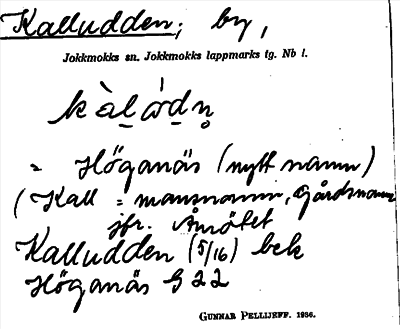 Kalludden; by,
Jokkmokks sn. Jokkmokks lappmarks tg. Nb l.
= Höganäs (nytt namn)
(Kall = mansnamn, gårdsnamn
jfr. Åmötet
Kalludden (5/16) bek
Höganäs G 22
GUNNAR PELLIJEFF. 1956.